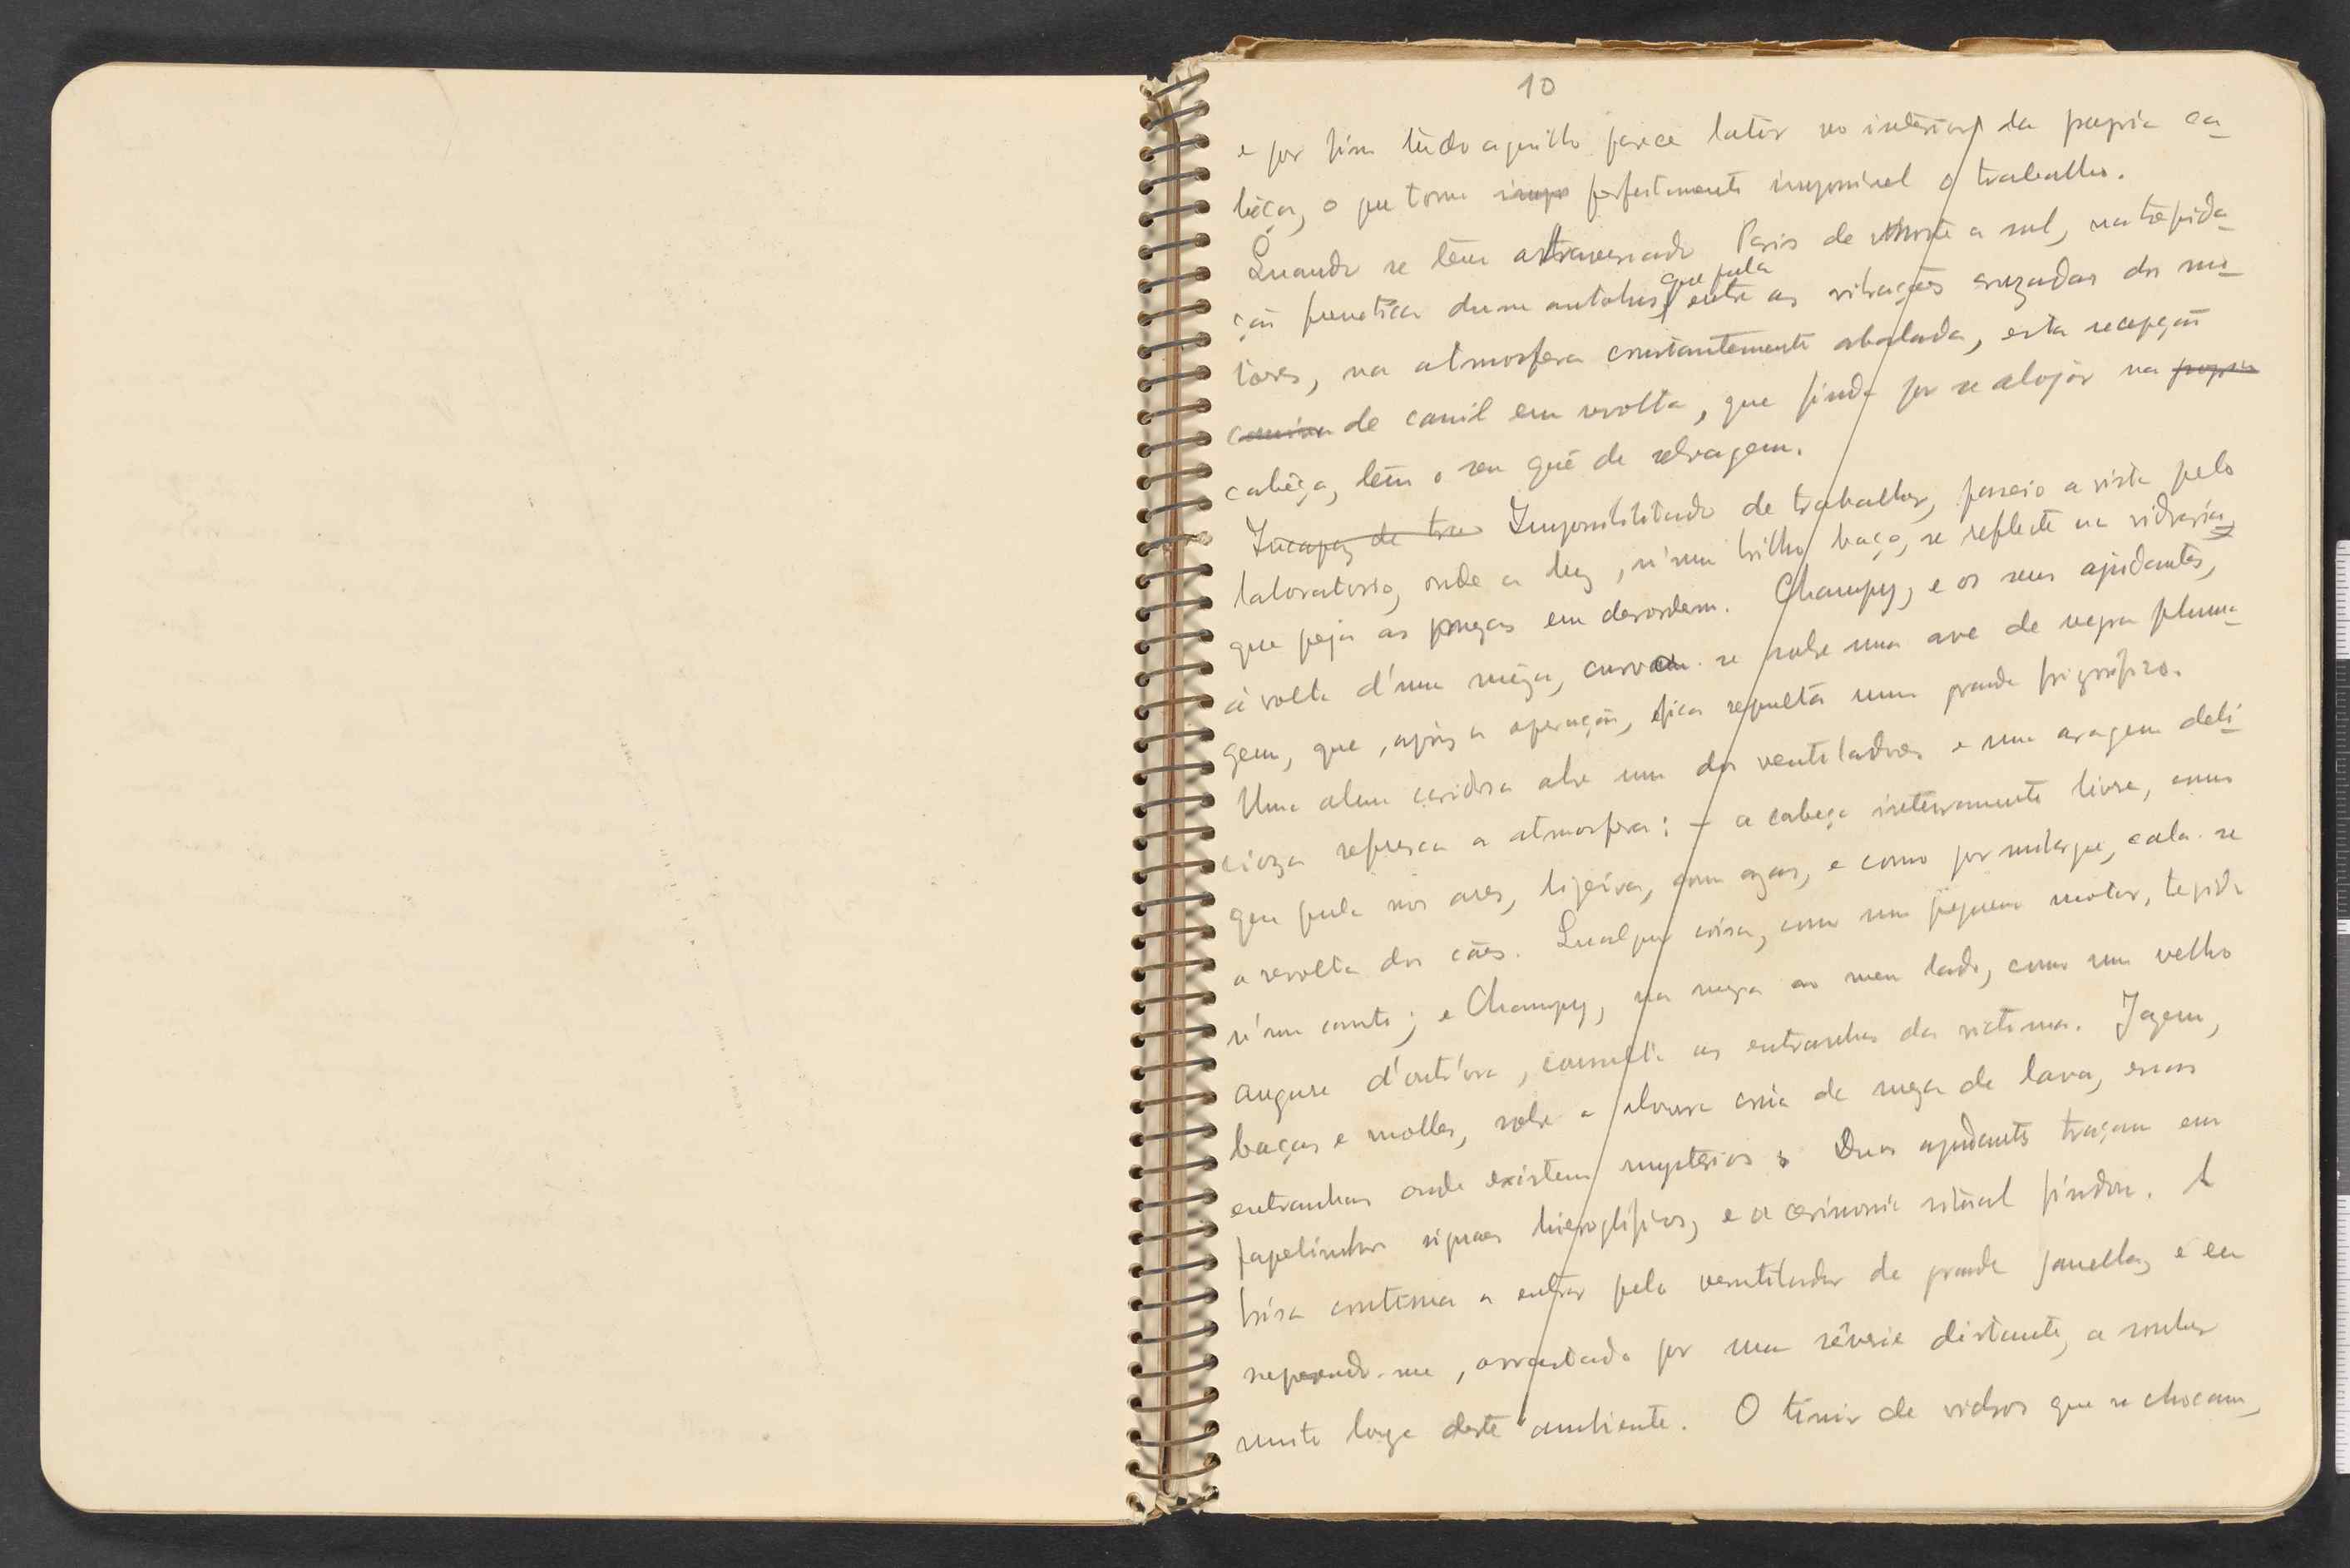 10
e por fim tudo aquillo parece bater no interior da propria ca-
bêça, o que torna impo perfeitamente impossivel o trabalho.
Quando se têm atravessado Paris de Norte a sul, na trepida-
ção frenetica dum autobus, que pula entre as vibrações cruzadas dos mo-
tores, na atmosfera constantemente abalada, esta recepção
canina de canil em revolta, que finda por se alojar na propria
cabêça, têm o seu quê de selvagem.
Incapaz de tra Impossibilitado de trabalhar, passeio a vista pelo
laboratorio, onde a luz, n'um brilho baço, se reflecte na vidraria,
que peja as mezas em desordem. Champy, e os seus ajudantes,
á volta d'uma mêza, curvam-se sobre uma ave de negra pluma-
gem, que, após a operação, fica sepulta num grande frigorifico.
Uma alma caridosa abre um dos ventiladores e uma aragem deli-
cioza refresca a atmosfera: – a cabeça inteiramente livre, como
que pula nos ares, ligeira, com azas, e como por milagre, cala-se
a revolta dos cães. Qualquer coisa, como um pequeno motor, trepida
n'um canto; e Champy, na meza ao meu lado, como um velho
augure d'outr'ora, consulta as entranhas da victima. Jazem,
baças e molles, sobre a alvura da meza de lava, essas
entranhas onde existem mysterios; Duas ajudantes traçam em
papelinhos signaes hieroglificos, e a cerimonia ritual findou. A
brisa continua a entrar pelo ventilador da grande janella, e eu
surprendo-me, arrastado por uma rêverie distante, a sonhar
muito longe deste ambiente. O tinir de vidros que se chocam,